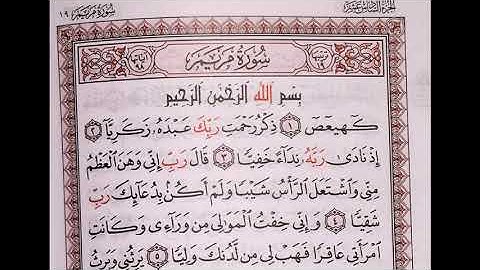 سُورَةُ مَرْيَمَ ١٩
الجزء السادس عشر
سُورَةُ مَرْيَمَ
بِسْمِ اللهِ الرَّحْمٰنِ الرَّحِيمِ
كٓهيعٓصٓ ١ ذِكْرُ رَحْمَتِ رَبِّكَ عَبْدَهُۥ زَكَرِيَّآ ٢
إِذْ نَادَىٰ رَبَّهُۥ نِدَآءً خَفِيًّا ٣ قَالَ رَبِّ إِنِّى وَهَنَ ٱلْعَظْمُ
مِنِّى وَٱشْتَعَلَ ٱلرَّأْسُ شَيْبًا وَلَمْ أَكُنۢ بِدُعَآئِكَ رَبِّ
شَقِيًّا ٤ وَإِنِّى خِفْتُ ٱلْمَوَٰلِىَ مِن وَرَآءِى وَكَانَتِ
ٱمْرَأَتِى عَاقِرًا فَهَبْ لِى مِن لَّدُنكَ وَلِيًّا ٥ يَرِثُنِى وَيَرِثُ